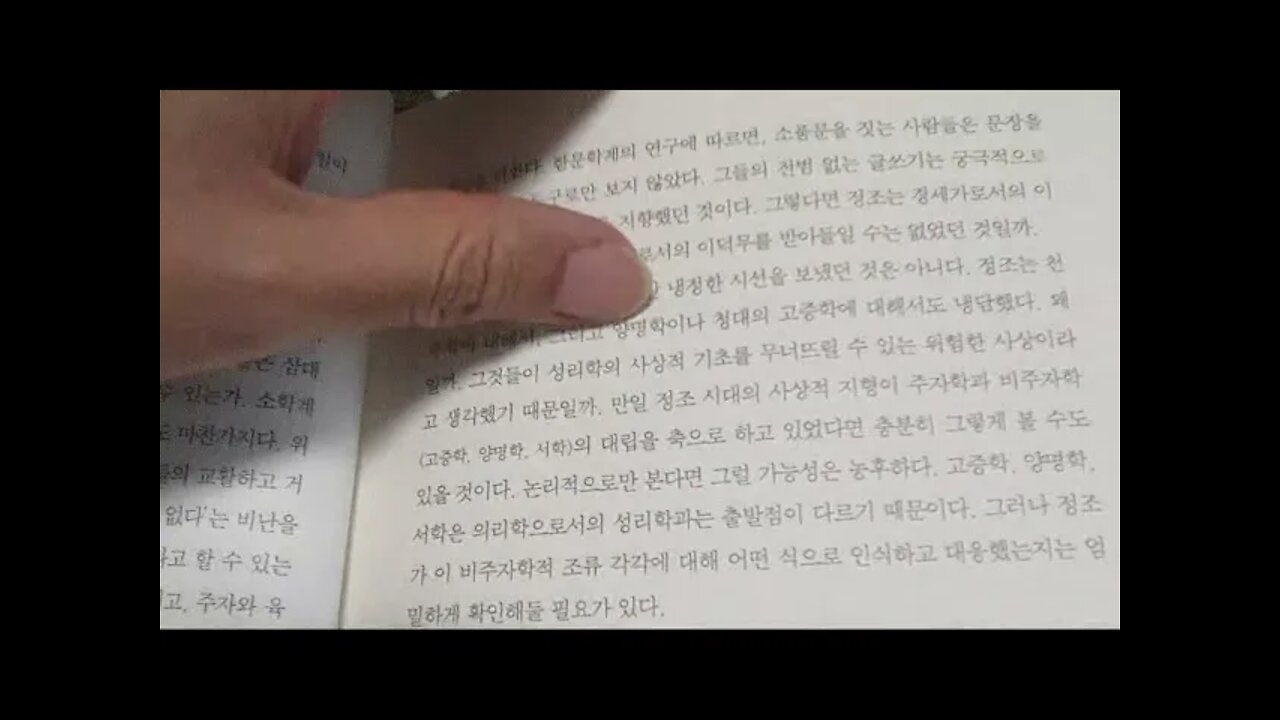 삼대
수 있는가. 소학계
도 마찬가지다. 위
들의 교활하고 거
없다'는 비난을
라고 할 수 있는
고, 주자와 육
한문학계의 연구에 따르면, 소품문을 짓는 사람들은 문장을
구로만 보지 않았다. 그들의 전범 없는 글쓰기는 궁극적으로
지향했던 것이다. 그렇다면 정조는 경세가로서의 이
로서의 이덕무를 받아들일 수는 없었던 것일까.
냉정한 시선을 보냈던 것은 아니다. 정조는 천
대해서, 그리고 양명학이나 청대의 고증학에 대해서도 냉담했다. 왜
일까. 그것들이 성리학의 사상적 기초를 무너뜨릴 수 있는 위험한 사상이라
고 생각했기 때문일까. 만일 정조 시대의 사상적 지형이 주자학과 비주자학
(고증학, 양명학, 서학)의 대립을 축으로 하고 있었다면 충분히 그렇게 볼 수도
있을 것이다. 논리적으로만 본다면 그럴 가능성은 농후하다. 고증학, 양명학,
서학은 의리학으로서의 성리학과는 출발점이 다르기 때문이다. 그러나 정조
가 이 비주자학적 조류 각각에 대해 어떤 식으로 인식하고 대응했는지는 엄
밀하게 확인해둘 필요가 있다.